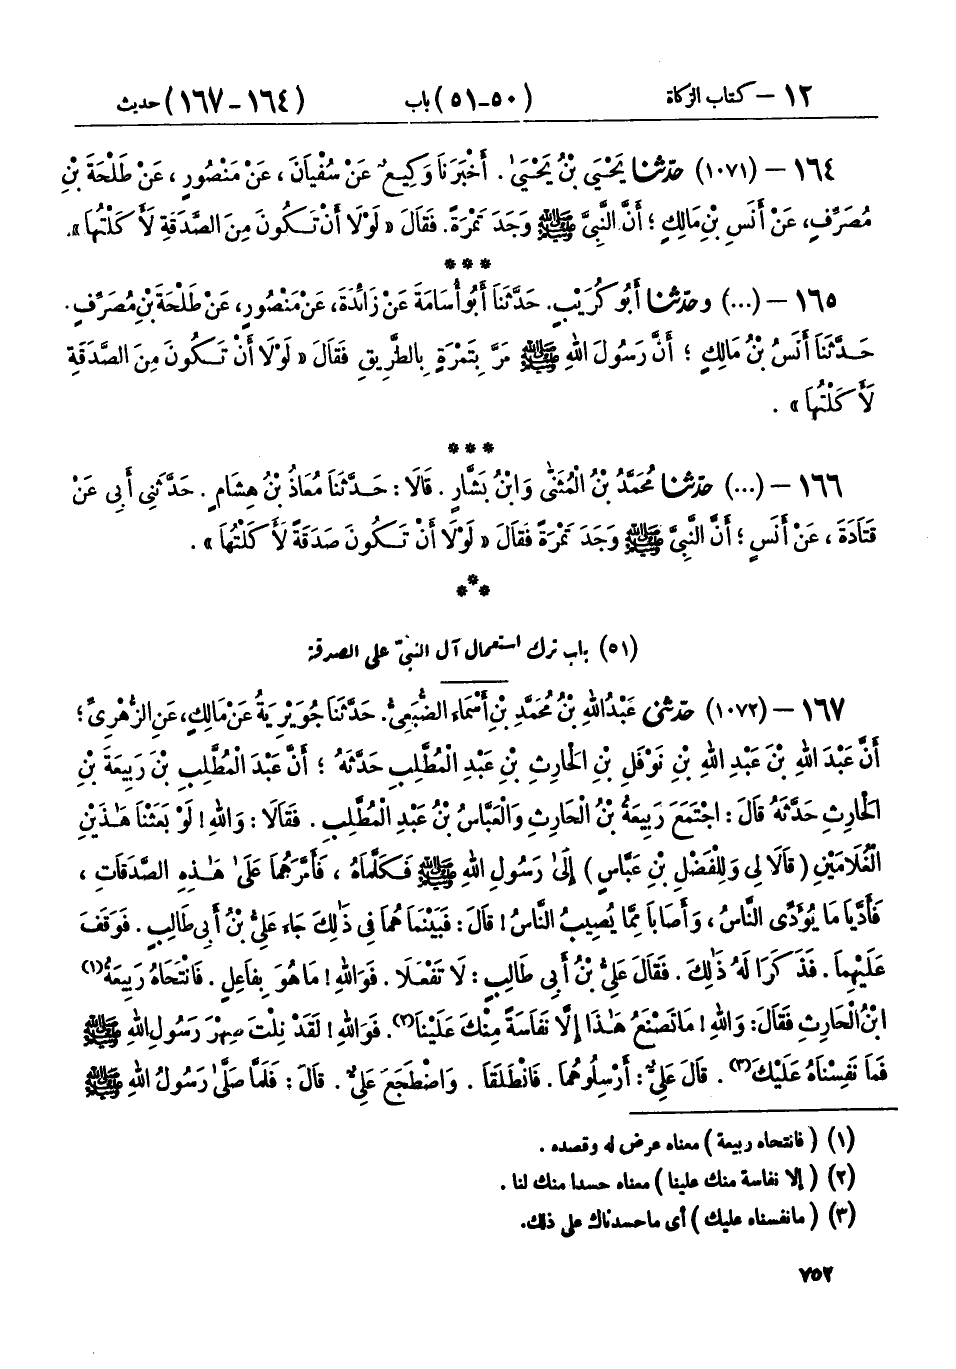 ١٢ – كتاب الزكاة (٥٠-٥١) باب (١٦٤-١٦٧) حديث
١٦٤ – (١٠٧١) حدّثنا يَحْيَى بْنُ يَحْيَىٰ. أَخْبَرَنَا وَكِيعٌ عَنْ سُفْيَانَ، عَنْ مَنْصُورٍ، عَنْ طَلْحَةَ بْنِ
مُصَرِّفٍ، عَنْ أَنَسِ بْنِ مَالِكٍ؛ أَنَّ النَّبِيَّ ﷺ وَجَدَ تَمْرَةً. فَقَالَ « لَوْلَا أَنْ تَكُونَ مِنَ الصَّدَقَةِ لَأَكَلْتُهَا».
***
١٦٥ – (...) وحدّثنا أَبُو كُرَيْبٍ. حَدَّثَنَا أَبُو أُسَامَةَ عَنْ زَائِدَةَ، عَنْ مَنْصُورٍ، عَنْ طَلْحَةَ بْنِ مُصَرِّفٍ.
حَدَّثَنَا أَنَسُ بْنُ مَالِكٍ؛ أَنَّ رَسُولَ اللهِ ﷺ مَرَّ بِتَمْرَةٍ بِالطَّرِيقِ فَقَالَ « لَوْلَا أَنْ تَكُونَ مِنَ الصَّدَقَةِ
لَأَكَلْتُهَا».
***
١٦٦ – (...) حدّثنا مُحَمَّدُ بْنُ الْمُثَنَّى وَابْنُ بَشَّارٍ. قَالَا: حَدَّثَنَا مُعَاذُ بْنُ هِشَامٍ. حَدَّثَنِي أَبِي عَنْ
قَتَادَةَ، عَنْ أَنَسٍ؛ أَنَّ النَّبِيَّ ﷺ وَجَدَ تَمْرَةً فَقَالَ « لَوْلَا أَنْ تَكُونَ صَدَقَةً لَأَكَلْتُهَا».
***
(٥١) باب ترك استعمال آل النبيّ على الصدقة
١٦٧ – (١٠٧٢) حدّثني عَبْدُ اللهِ بْنُ مُحَمَّدِ بْنِ أَسْمَاءَ الضُّبَعِيُّ. حَدَّثَنَا جُوَيْرِيَةُ عَنْ مَالِكٍ، عَنِ الزُّهْرِيِّ؛
أَنَّ عَبْدَ اللهِ بْنَ عَبْدِ اللهِ بْنِ نَوْفَلِ بْنِ الْحَارِثِ بْنِ عَبْدِ الْمُطَّلِبِ حَدَّثَهُ؛ أَنَّ عَبْدَ الْمُطَّلِبِ بْنَ رَبِيعَةَ بْنِ
الْحَارِثِ حَدَّثَهُ قَالَ: اجْتَمَعَ رَبِيعَةُ بْنُ الْحَارِثِ وَالْعَبَّاسُ بْنُ عَبْدِ الْمُطَّلِبِ. فَقَالَا: وَاللهِ! لَوْ بَعَثْنَا هَٰذَيْنِ
الْغُلَامَيْنِ (قَالَا لِي وَلِلْفَضْلِ بْنِ عَبَّاسٍ) إِلَىٰ رَسُولِ اللهِ ﷺ فَكَلَّمَاهُ، فَأَمَّرَهُمَا عَلَىٰ هَٰذِهِ الصَّدَقَاتِ،
فَأَدَّيَا مَا يُؤَدِّي النَّاسُ، وَأَصَابَا مِمَّا يُصِيبُ النَّاسُ! قَالَ: فَبَيْنَمَا هُمَا فِي ذَٰلِكَ جَاءَ عَلِيُّ بْنُ أَبِي طَالِبٍ. فَوَقَفَ
عَلَيْهِمَا. فَذَكَرَا لَهُ ذَٰلِكَ. فَقَالَ عَلِيُّ بْنُ أَبِي طَالِبٍ: لَا تَفْعَلَا. فَوَاللهِ! مَا هُوَ بِفَاعِلٍ. فَانْتَحَاهُ رَبِيعَةُ(١)
ابْنُ الْحَارِثِ فَقَالَ: وَاللهِ! مَا تَصْنَعُ هَٰذَا إِلَّا نَفَاسَةً مِنْكَ عَلَيْنَا(٢). فَوَاللهِ! لَقَدْ نِلْتَ صِهْرَ رَسُولِ اللهِ ﷺ
فَمَا نَفِسْنَاهُ عَلَيْكَ(٣). قَالَ عَلِيٌّ: أَرْسِلُوهُمَا. فَانْطَلَقَا. وَاضْطَجَعَ عَلِيٌّ. قَالَ: فَلَمَّا صَلَّىٰ رَسُولُ اللهِ ﷺ
(١) (فانتحاه ربيعة) معناه عرض له وقصده.
(٢) (إلا نفاسة منك علينا) معناه حسدا منك لنا.
(٣) (مانفسناه عليك) أى ماحسدناك على ذلك.
٧٥٢